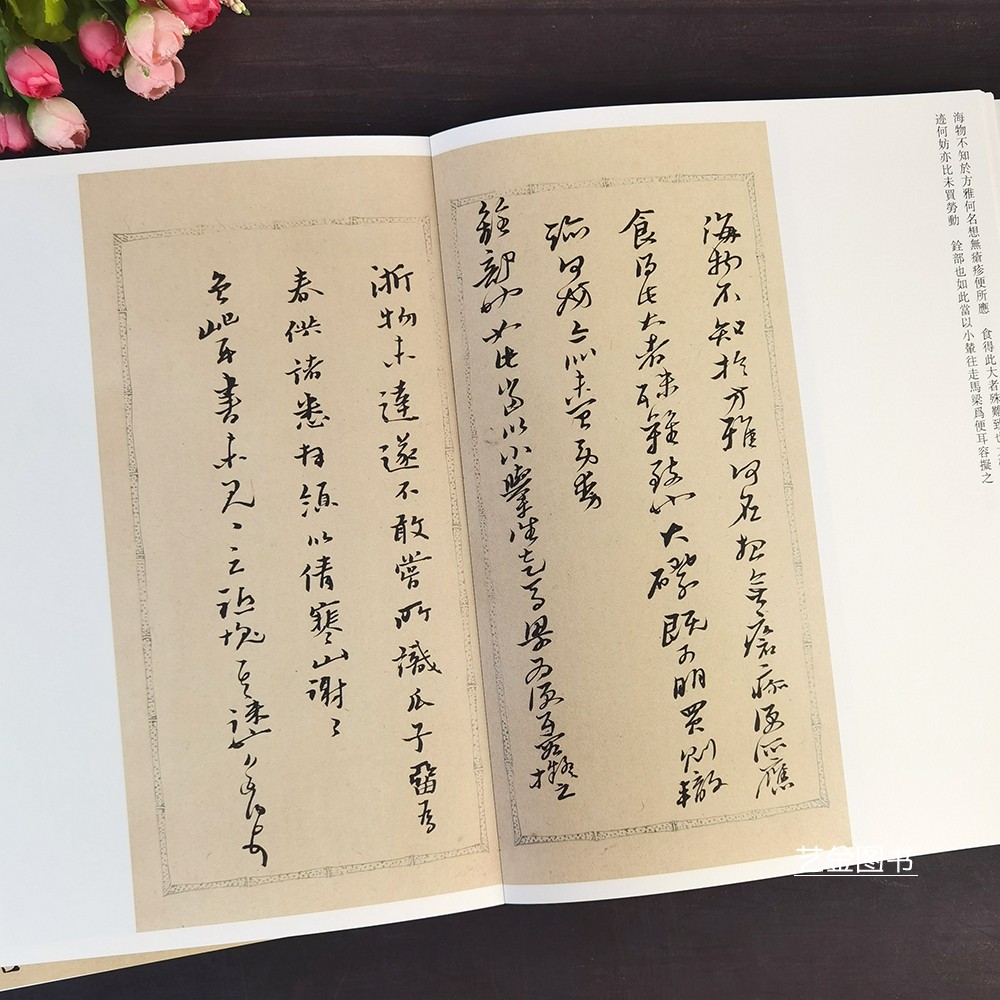 海物不知於方雅何名想無瘡疹便所應 食得此大者殊難致也
迹何妨亦比未買勞動 銓部也如此當以小輦往走馬梁爲便耳容擬之
海物不知於方雅何名想無瘡疹便所應
食得此大者殊難致也大礫既不明買則轍
迹何妨亦比未買勞動
銓部也如此當以小輦往走馬梁爲便耳容擬之
浙物未達遂不敢嘗所識瓜子留爲
春供諸悉並領以倩寒山謝〻
書未見〻之
艺金图书